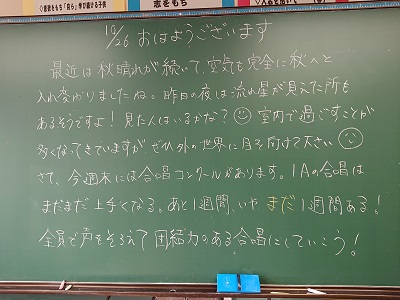 志をもち
10/26 おはようございます
最近は秋晴れが続いて、空気も完全に秋へと
入れ変わりましたね。昨日の夜は流れ星が見えた所も
あるそうですよ！見た人はいるかな？ 室内で過ごすことが
多くなってきていますがぜひ外の世界に目を向けて下さい
さて、今週末には合唱コンクールがあります。1Aの合唱は
まだまだ上手くなる。あと1週間、いや、まだ1週間ある！
全員で声をそろえて団結力のある合唱にしていこう！